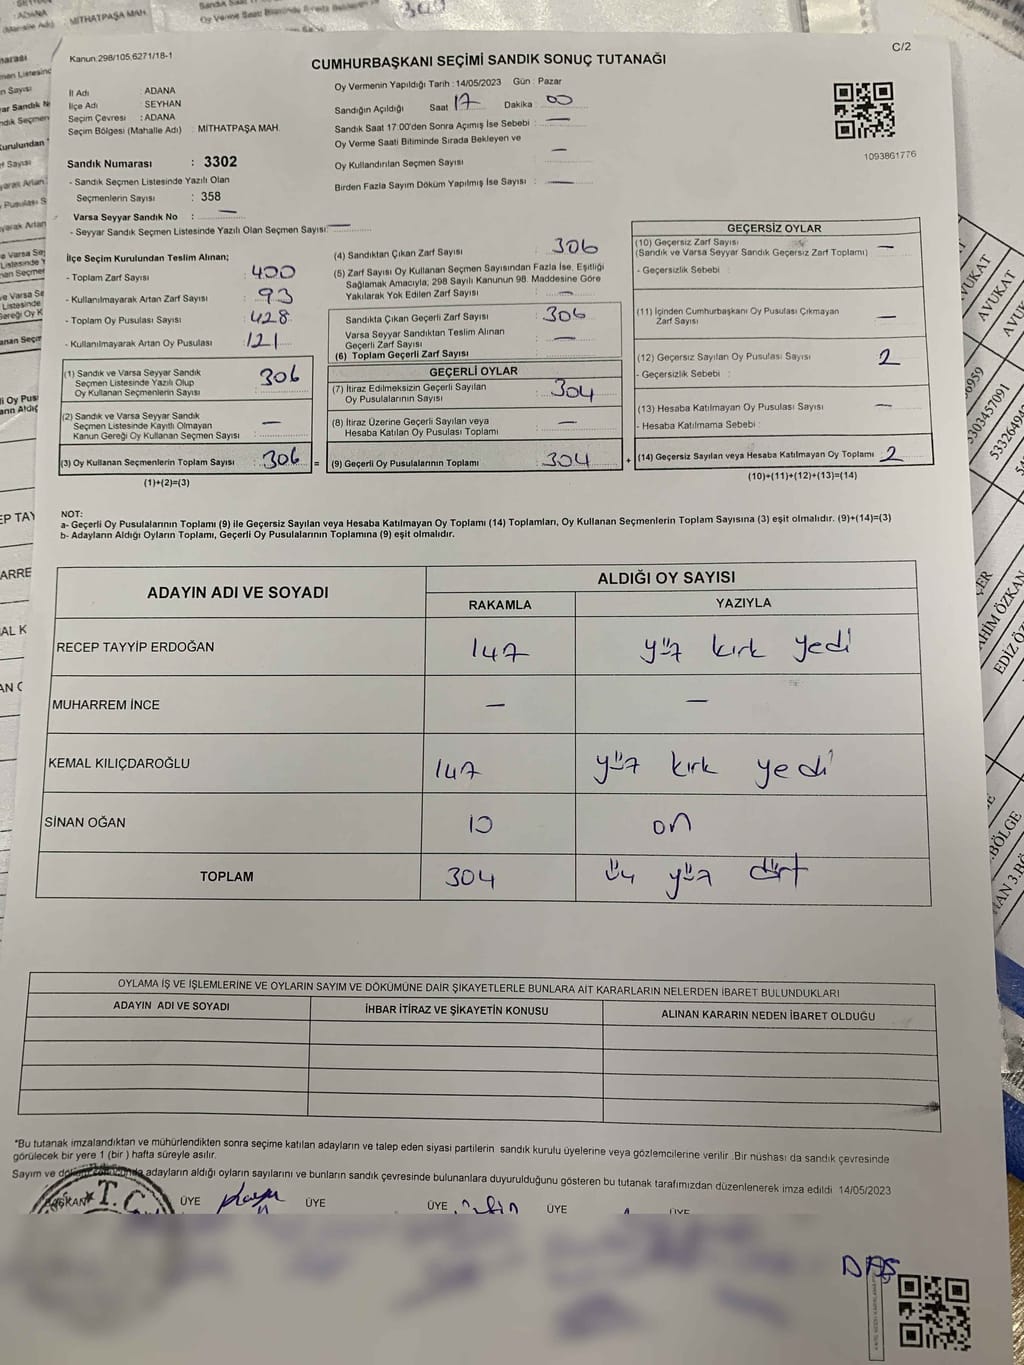 Kanun:298/105,6271/18-1
C/2
CUMHURBAŞKANI SEÇİMİ SANDIK SONUÇ TUTANAĞI
İl Adı : ADANA
İlçe Adı : SEYHAN
Seçim Çevresi : ADANA
Seçim Bölgesi (Mahalle Adı) : MİTHATPAŞA MAH.
Sandık Numarası : 3302
- Sandık Seçmen Listesinde Yazılı Olan
Seçmenlerin Sayısı : 358
Varsa Seyyar Sandık No : —
- Seyyar Sandık Seçmen Listesinde Yazılı Olan Seçmen Sayısı: —
Oy Vermenin Yapıldığı Tarih : 14/05/2023 Gün : Pazar
Sandığın Açıldığı Saat 17 Dakika : 00
Sandık Saat 17:00'den Sonra Açımış İse Sebebi : —
Oy Verme Saati Bitiminde Sırada Bekleyen ve
Oy Kullandırılan Seçmen Sayısı : —
Birden Fazla Sayım Döküm Yapılmış İse Sayısı : —
1093861776
İlçe Seçim Kurulundan Teslim Alınan;
- Toplam Zarf Sayısı : 400
- Kullanılmayarak Artan Zarf Sayısı : 93
- Toplam Oy Pusulası Sayısı : 428
- Kullanılmayarak Artan Oy Pusulası : 121
(1) Sandık ve Varsa Seyyar Sandık
Seçmen Listesinde Yazılı Olup
Oy Kullanan Seçmenlerin Sayısı : 306
(2) Sandık ve Varsa Seyyar Sandık
Seçmen Listesinde Kayıtlı Olmayan
Kanun Gereği Oy Kullanan Seçmen Sayısı : —
(3) Oy Kullanan Seçmenlerin Toplam Sayısı : 306 =
(1)+(2)=(3)
(4) Sandıktan Çıkan Zarf Sayısı : 306
(5) Zarf Sayısı Oy Kullanan Seçmen Sayısından Fazla İse, Eşitliği
Sağlamak Amacıyla, 298 Sayılı Kanunun 98. Maddesine Göre
Yakılarak Yok Edilen Zarf Sayısı : —
Sandıkta Çıkan Geçerli Zarf Sayısı : 306
Varsa Seyyar Sandıktan Teslim Alınan
Geçerli Zarf Sayısı : —
(6) Toplam Geçerli Zarf Sayısı
GEÇERLİ OYLAR
(7) İtiraz Edilmeksizin Geçerli Sayılan
Oy Pusulalarının Sayısı : 304
(8) İtiraz Üzerine Geçerli Sayılan veya
Hesaba Katılan Oy Pusulası Toplamı : —
(9) Geçerli Oy Pusulalarının Toplamı : 304 +
GEÇERSİZ OYLAR
(10) Geçersiz Zarf Sayısı : —
(Sandık ve Varsa Seyyar Sandık Geçersiz Zarf Toplamı)
- Geçersizlik Sebebi :
(11) İçinden Cumhurbaşkanı Oy Pusulası Çıkmayan
Zarf Sayısı : —
(12) Geçersiz Sayılan Oy Pusulası Sayısı : 2
- Geçersizlik Sebebi :
(13) Hesaba Katılmayan Oy Pusulası Sayısı : —
- Hesaba Katılmama Sebebi :
(14) Geçersiz Sayılan veya Hesaba Katılmayan Oy Toplamı : 2
(10)+(11)+(12)+(13)=(14)
NOT:
a- Geçerli Oy Pusulalarının Toplamı (9) ile Geçersiz Sayılan veya Hesaba Katılmayan Oy Toplamı (14) Toplamları, Oy Kullanan Seçmenlerin Toplam Sayısına (3) eşit olmalıdır. (9)+(14)=(3)
b- Adayların Aldığı Oyların Toplamı, Geçerli Oy Pusulalarının Toplamına (9) eşit olmalıdır.
ADAYIN ADI VE SOYADI
ALDIĞI OY SAYISI
RAKAMLA YAZIYLA
RECEP TAYYİP ERDOĞAN 147 yüz kırk yedi
MUHARREM İNCE — —
KEMAL KILIÇDAROĞLU 147 yüz kırk yedi
SİNAN OĞAN 10 on
TOPLAM 304 üç yüz dört
OYLAMA İŞ VE İŞLEMLERİNE VE OYLARIN SAYIM VE DÖKÜMÜNE DAİR ŞİKAYETLERLE BUNLARA AİT KARARLARIN NELERDEN İBARET BULUNDUKLARI
ADAYIN ADI VE SOYADI İHBAR İTİRAZ VE ŞİKAYETİN KONUSU ALINAN KARARIN NEDEN İBARET OLDUĞU
*Bu tutanak imzalandıktan ve mühürlendikten sonra seçime katılan adayların ve talep eden siyasi partilerin sandık kurulu üyelerine veya gözlemcilerine verilir .Bir nüshası da sandık çevresinde
görülecek bir yere 1 (bir ) hafta süreyle asılır.
Sayım ve dökümü adayların aldığı oyların sayılarını ve bunların sandık çevresinde bulunanlara duyurulduğunu gösteren bu tutanak tarafımızdan düzenlenerek imza edildi 14/05/2023
BAŞKAN T.C. ÜYE ÜYE ÜYE ÜYE ÜYE
MİTHATPAŞA MAH.
AVUKAT
AVUKAT
5330457091
EDİZ